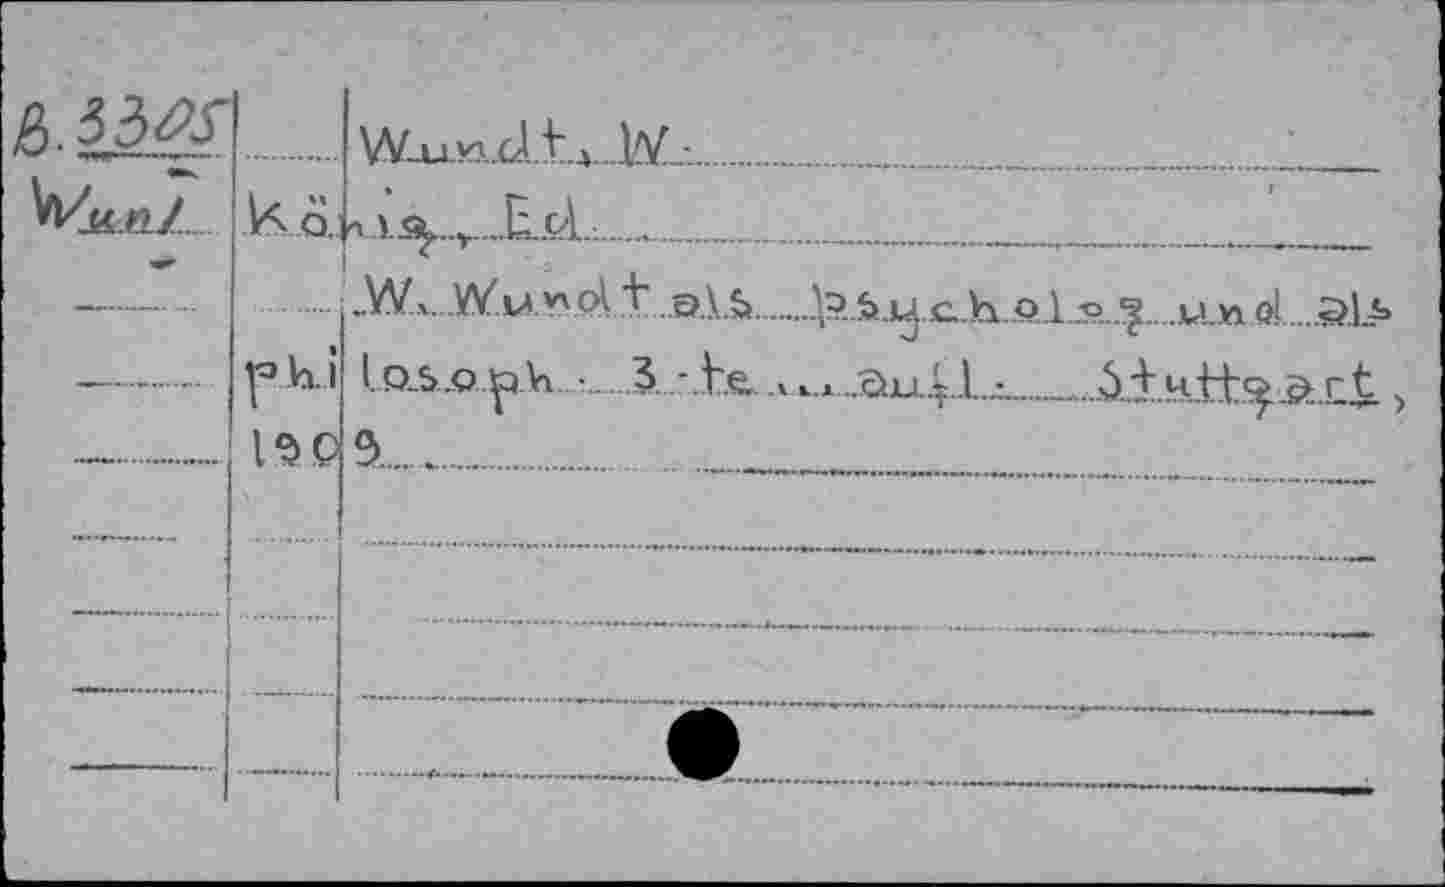 B.3305 Wundt, W.
Wun/ König, Ed.
W. Wundt als Psycholog und als
philosoph. 3-te Aufl. Stuttgart,
1909.